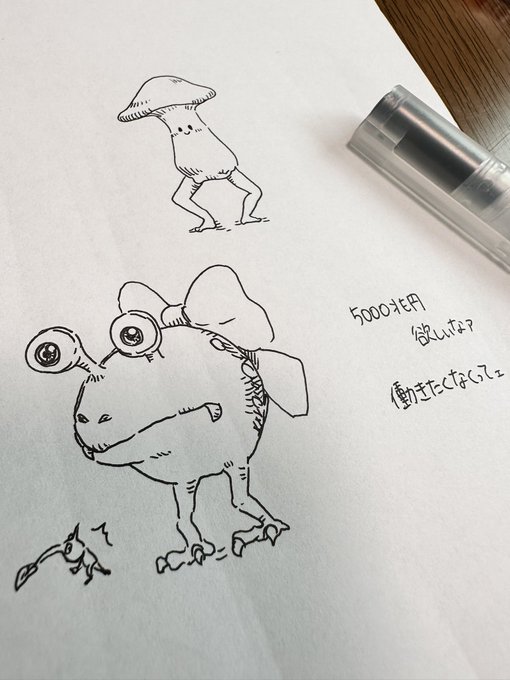 5000兆円
欲しいなァ
働きたくなくってェ